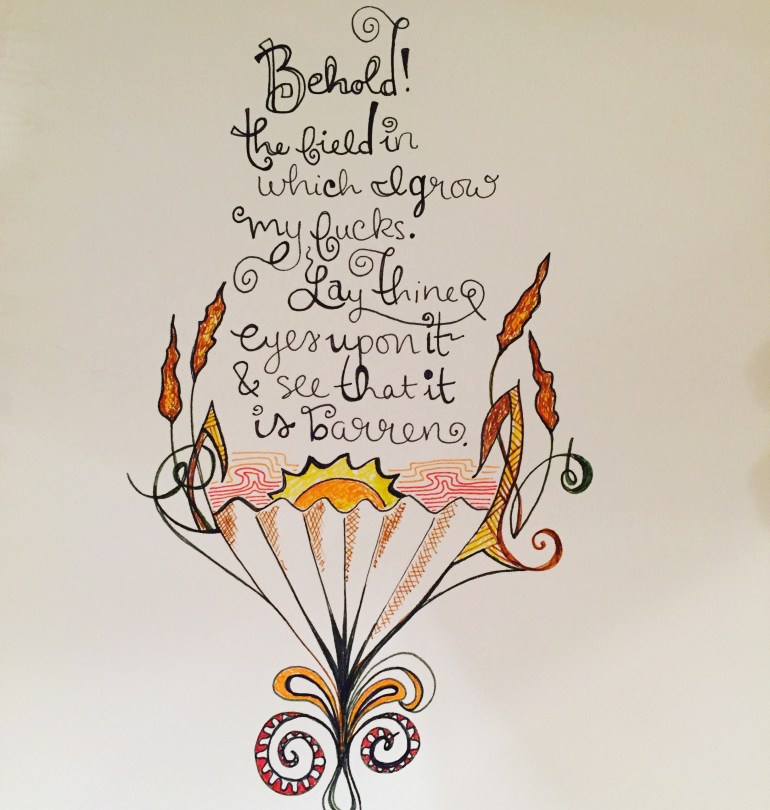 Behold!
the field in
which I grow
my fucks.
Lay thine
eyes upon it
& see that it
is barren.